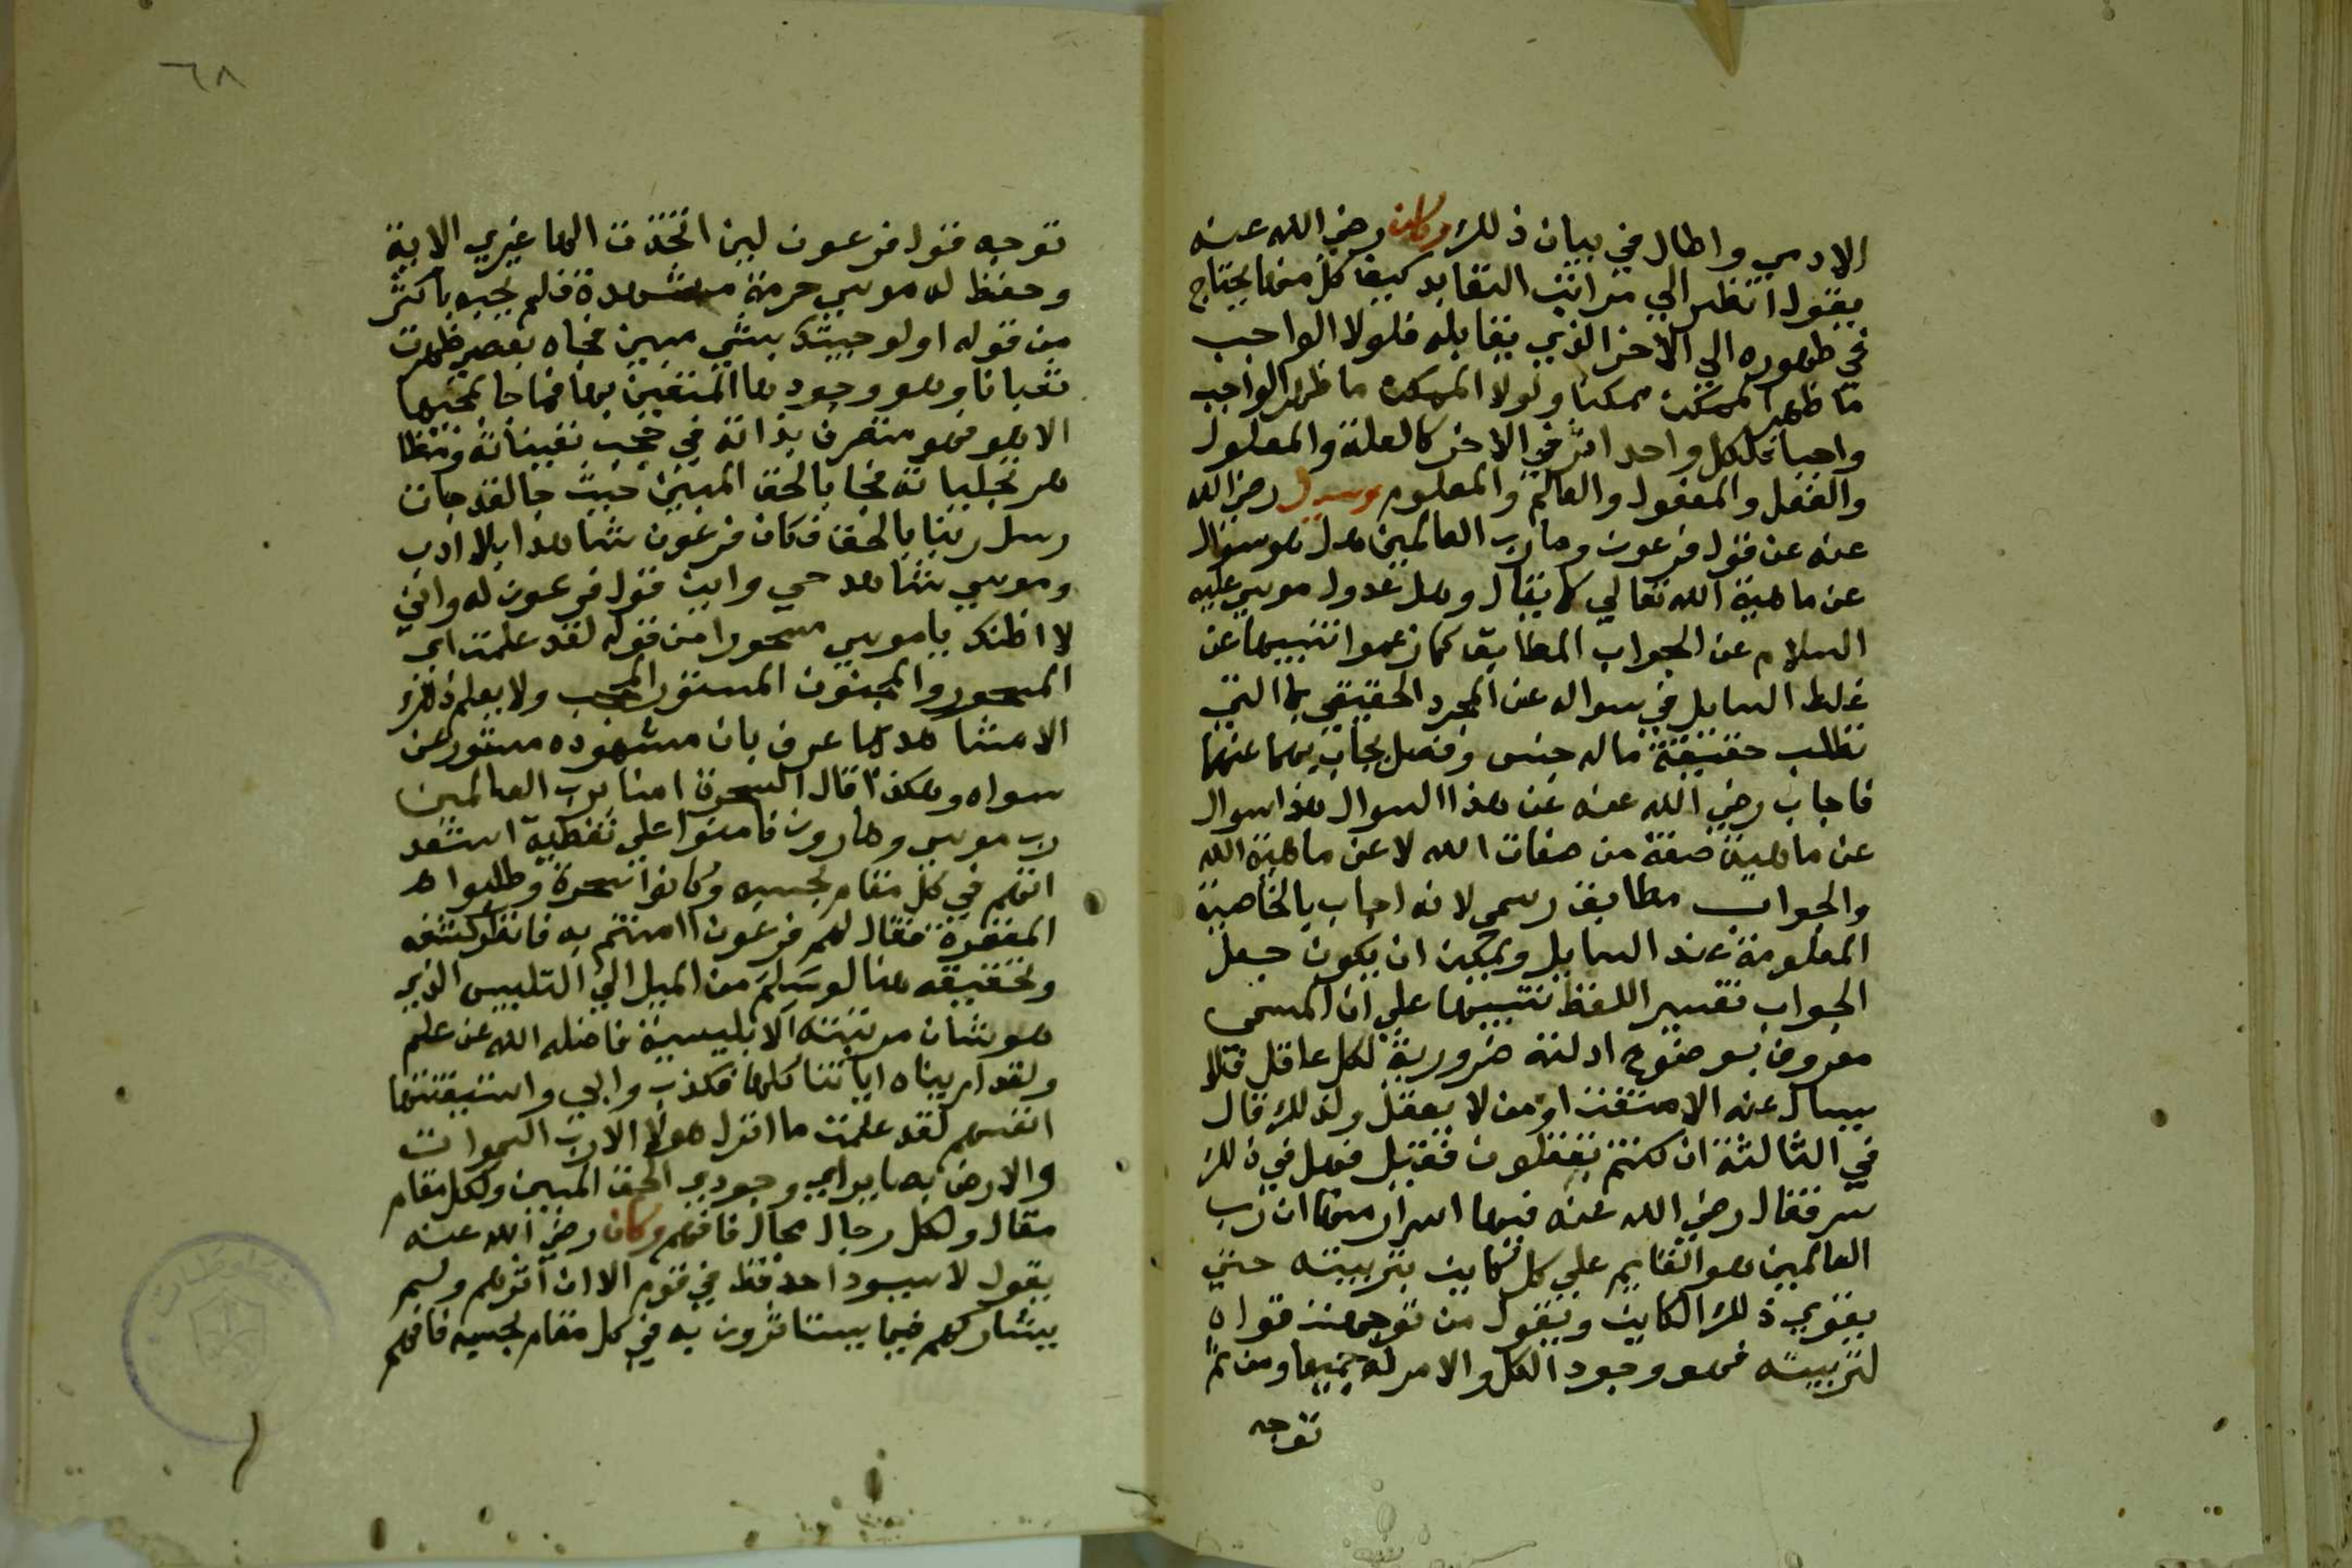 الادمي واطال في بيان ذلك وكان رضي الله عنه
يقول انظر الي مراتب التقابد كيف كل منها يحتاج
في ظهوره الي الاخر الذي يقابله فلولا الواجب
ما ظهر الممكن ممكنا ولولا الممكن ما ظهر الواجب
واجبا فلكل واحد اثر في الاخر كالعلة والمعلول
والفعل والمفعول والعالم والمعلوم وسيل رضي الله
عنه عن قول فرعون وما رب العالمين هل هو سوال
عن ماهية الله تعالي كما يقال وهل عدول موسي عليه
السلام عن الجواب المطابق كما زعموا تنبيها عن
غلط السايل في سواله عن المجرد الحقيقي بما التي
تطلب حقيقة ما له جنس وفصل يجاب بهما عنها
فاجاب رضي الله عنه عن هذا السوال هذا سوال
عن ماهية صفة من صفات الله لا عن ماهية الله
والجواب مطابق رسمي لانه اجاب بالخاصية
المعلومة عند السايل ويمكن ان يكون جعل
الجواب تفسير اللفظ تنبيها علي ان المسمي
معروف بوضوح ادلته ضرورية لكل عاقل فلا
يسال عنه الا متعنت او من لا يعقل ولذلك قال
في الثالثة ان كنتم تعقلون فقيل فهل في ذلك
سر فقال رضي الله عنه فيها اسرار منها ان رب
العالمين هو القايم علي كل كاين بتربيته حتي
يقوي ذلك الكاين ويقول من توجهت قواه
لتربيته فهو وجود الكل والامر له جميعا ومن ثم
توجه
٦٨
توجه قول فرعون لين اتخذت الها غيري الاية
وحفظ له موسي حرمة مشهده فلم يجبه باكثر
من قوله اولو جيتك بشي مبين فجاه بعصي ظهرت
ثعبانا وهو وجودها المتعين بها فما جا بمحيها
الا هو فهو متصرف بذاته في حجب تعيناته ومظا
هر تجلياته فجا بالحق المبين حيث جا لقد جات
رسل ربنا بالحق فكان فرعون شاهدا بلا ادب
وموسي شاهد حي واين قول فرعون له واني
لا اظنك ياموسي مسحورا من قوله لقد علمت اي
المسحور والمجنون المستور المحجب ولا يعلم ذلك
الا مشاهد لها عرف بان مشهوده مستور عن
سواه وهكذا قال السحرة امنا برب العالمين
رب موسي وهارون فامنوا علي تغطية استعد
انتم في كل مقام بحسبه وكانوا سحرة وطلبوا هد
المغفرة فقال لهم فرعون اامنتم به فانظر كشفه
وتحقيقه هنا لو سلم من الميل الي التلبيس الذي
هو شان مرتبته الابليسية فاضله الله عن علم
ولقد اريناه اياتنا كلها فكذب وابي واستيقنتها
انفسهم لقد علمت ما انزل هولا الا رب السموات
والارض بصاير اي وجودي الحق المبين ولكل مقام
مقال ولكل رجال مجال فافهم وكان رضي الله عنه
يقول لا يسود احد قط في قوم الا ان اثرهم ولم
يشاركهم فيما يستاثرون به في كل مقام بحسبه فافهم